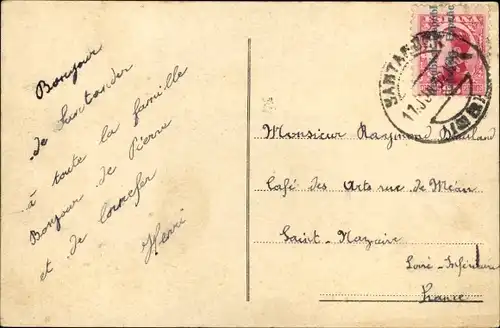 Bonjour
de Santander
à toute la famille
Bonjour de Pierre
et de
Henri
SANTANDER
Monsieur Raymond
Café des Arts rue de Méan
Saint-Nazaire
Loire-Inférieure
France